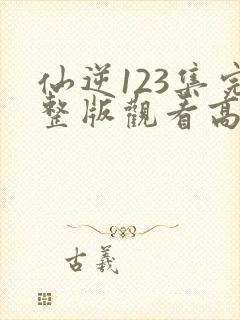 仙逆123集完
整版觀看高
古義